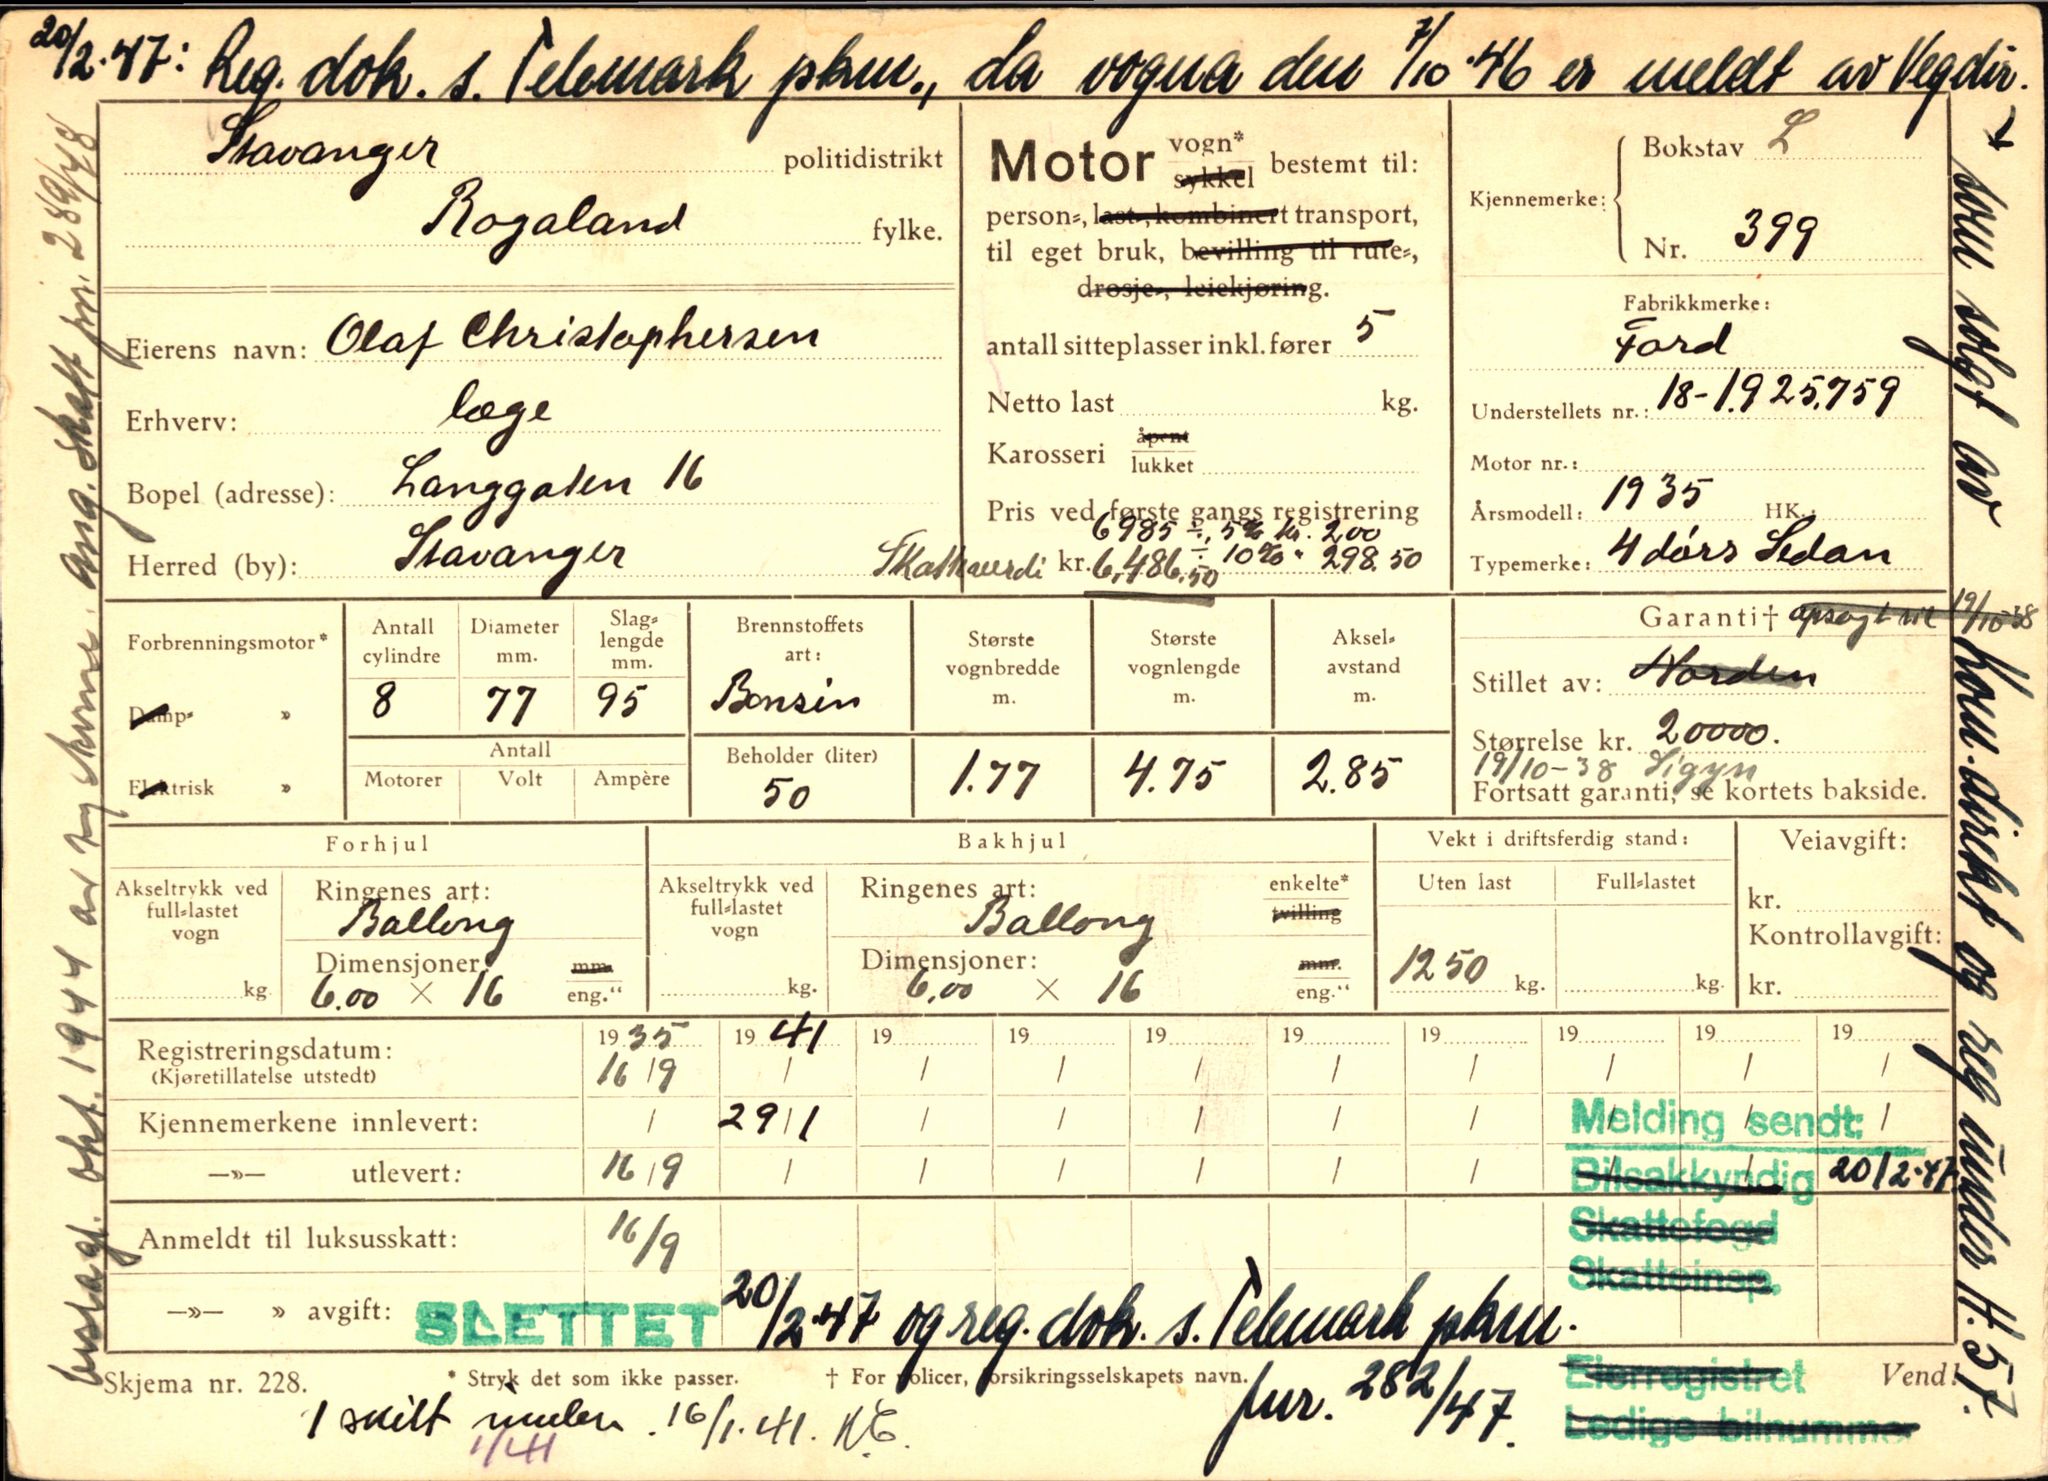 20/2.47: Reg. dok. s. Telemark pkm., da vogna den 7/10.46 er meldt av Vegdir.
som solgt av Kom. dirikt og reg under H. 57.
Stavanger politidistrikt
Rogaland fylke.
Eierens navn: Olaf Christophersen
Erhverv: læge
Bopel (adresse): Langgaten 16
Herred (by): Stavanger
Motor vogn* sykkel bestemt til:
person-, last-, kombinert transport,
til eget bruk, bevilling til rute-,
drosje-, leiekjøring.
antall sitteplasser inkl. fører 5
Netto last kg.
Karosseri åpent lukket
Pris ved første gangs registrering
6985 ÷ 5% kr. 200
Skatteverdi kr. 6,486,50 ÷ 10% " 298.50
Kjennemerke: Bokstav L
Nr. 399
Fabrikkmerke:
Ford
Understellets nr.: 18-1.925.759
Motor nr.:
Årsmodell: 1935 HK.:
Typemerke: 4 dørs Sedan
Forbrenningsmotor*
Damp- »
Elektrisk »
Antall cylindre 8
Diameter mm. 77
Slaglengde mm. 95
Antall
Motorer Volt Ampère
Brennstoffets art: Bensin
Beholder (liter) 50
Største vognbredde m. 1.77
Største vognlengde m. 4.75
Akselavstand m. 2.85
Garanti† opsagt til 19/10-38
Stillet av: Norden
Størrelse kr. 20000.
19/10-38 Sigyn
Fortsatt garanti, se kortets bakside.
Forhjul
Akseltrykk ved full-lastet vogn kg.
Ringenes art: Ballong
Dimensjoner: 6.00 × 16 mm. eng."
Bakhjul
Akseltrykk ved full-lastet vogn kg.
Ringenes art: Ballong enkelte* tvilling
Dimensjoner: 6.00 × 16 mm. eng."
Vekt i driftsferdig stand:
Uten last Full-lastet
1250 kg. kg.
Veiavgift:
kr.
Kontrollavgift:
kr.
Registreringsdatum: 1935 1941 19 19 19 19 19 19 19 19
(Kjøretillatelse utstedt) 16/9 / / / / / / / / /
Kjennemerkene innlevert: / 29/1 / / / / / / / /
—»— utlevert: 16/9 / / / / / / / /
Anmeldt til luksusskatt: 16/9
—»— » avgift: SLETTET 20/2.47 og reg. dok. s. Telemark pkm.
Melding sendt:
Bilsakkyndig 20/2.47
Skattefogd
Skatteinsp.
Eierregistret
Ledige bilnummer
Skjema nr. 228. * Stryk det som ikke passer. † For policer, forsikringsselskapets navn. Vend!
jnr. 282/47.
1 skilt 16/1.41.
1/41
beslagl. okt. 1944 av tyskerne. Ang. skatt jnr. 289/48